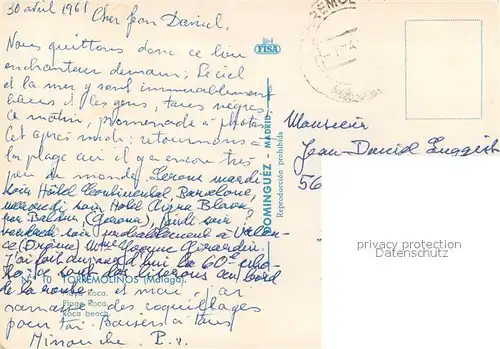 30 avril 1961
Cher Jean Daniel,
Nous quittons donc ce lieu
enchanteur demain; Le ciel
et la mer y sont immuablement
bleus et les gens, tous nègres,
ce matin, promenade à photos
cet après midi: retournons à
la plage où il y a encore très
peu de monde, Serons mardi
soir Hôtel Continental Barcelone,
mercredi soir Hôtel Aigua Blava,
par (Gerona), jeudi soir ?
vendredi soir probablement à Valen-
ce (Drôme) Mme Yvonne Girardin.
J'ai fait aujourd'hui la 60e
ce sont des liserons au bord
de la route et moi j'ai
ramassé des coquillages
pour toi. Baisers à tous
Minouche. P.y.
N.º 10 TORREMOLINOS (Málaga).
Playa Roca.
Plage Roca.
Roca beach.
FISA
DOMINGUEZ - MADRID
Reproducción prohibida
Monsieur
Jean-Daniel
56
privacy protection
Datenschutz